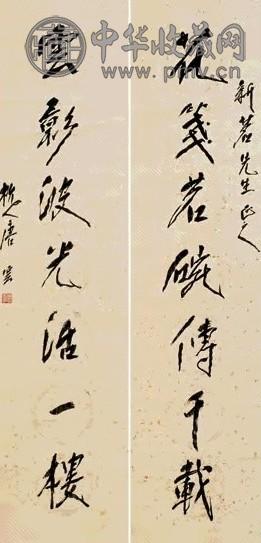 中华收藏网
新茗先生正之
花箋茗碗傳千載
雲影波光活一樓
杭人唐雲